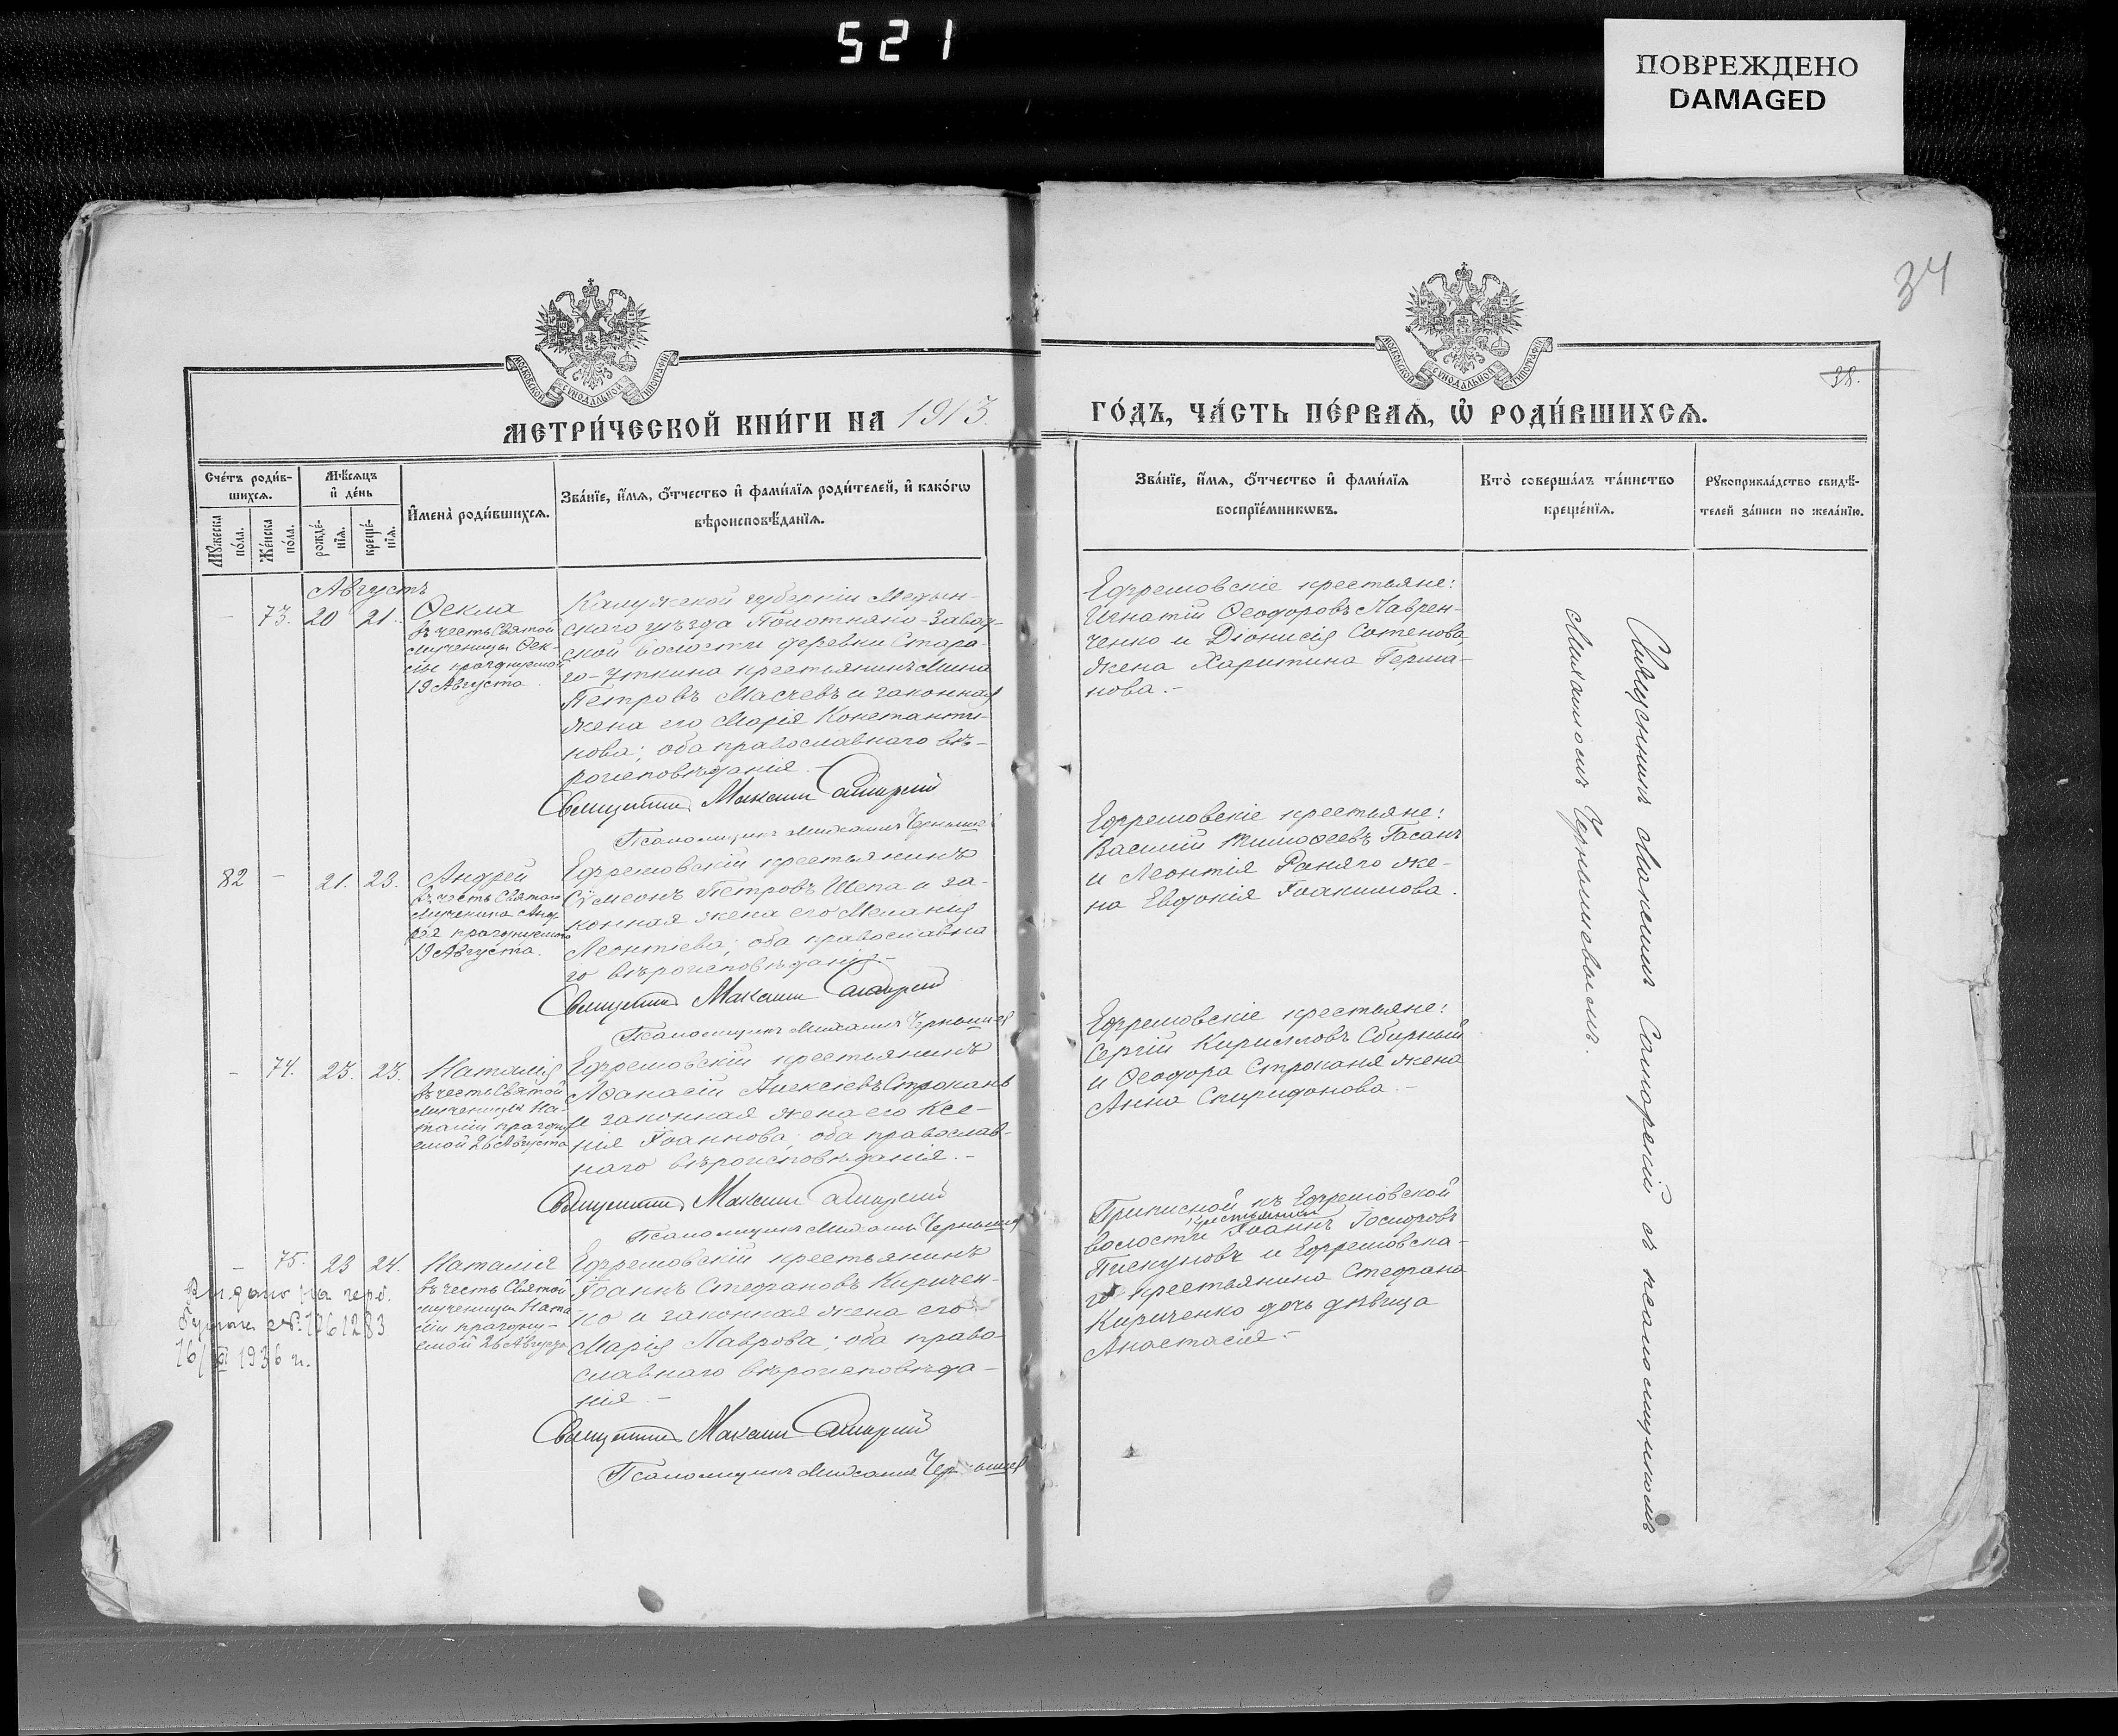 521
ПОВРЕЖДЕНО
DAMAGED
34
38.
МОСКОВСКОЙ СѴНОДАЛЬНОЙ ТИПОГРАФІИ
МОСКОВСКОЙ СѴНОДАЛЬНОЙ ТИПОГРАФІИ
МЕТРИ́ЧЕСКОЙ КНИ́ГИ НА 1913.
ГО́ДЪ, ЧА́СТЬ ПЕ́РВАѦ, Ѡ҆ РОДИ́ВШИХСѦ.
Сче́тъ роди́в-
шихсѧ.
Мꙋ́жеска
по́ла.
Же́нска
по́ла.
Мѣ́сѧцъ
и҆ де́нь
рожде́-
нїѧ.
креще́-
нїѧ.
И҆мена̀ роди́вшихсѧ.
Зва́нїе, и҆́мѧ, ѻ҆́тчество и҆ фами́лїѧ роди́телей, и҆ како́гѡ
вѣроисповѣ́данїѧ.
Зва́нїе, и҆́мѧ, ѻ҆́тчество и҆ фами́лїѧ
воспрїе́мникѡвъ.
Кто̀ соверша́лъ та́инство
креще́нїѧ.
Рꙋкоприкла́дство свидѣ́-
телей за́писи по жела́нїю.
Августъ
– 73. 20 21.
Ѳекла
въ честь Святой
мученицы Ѳек-
лы празднуемой
19 Августа.
Калужской губерніи Медын-
скаго уѣзда Полотняно-Завод-
ской волости деревни Стара-
го-Уткина крестьянинъ Мина
Петровъ Масчевъ и законная
жена его Марія Константи-
нова; оба православнаго вѣ-
роисповѣданія. –
Священникъ Максим Самарскій
Псаломщикъ Михаилъ Чернышев
Ефремовскіе крестьяне:
Игнатій Ѳеодоровъ Лаврен-
ченко и Діонисія Сотенова
жена Харитина Герма-
нова. –
82 – 21. 23.
Андрей
въ честь Святаго
Мученика Анд-
рея празднуемаго
19 Августа.
Ефремовскій крестьянинъ
Сѵмеонъ Петровъ Шепа и за-
конная жена его Меланія
Леонтіева; оба православна
го вѣроисповѣданія. –
Священникъ Максим Самарскій
Псаломщикъ Михаилъ Чернышев
Ефремовскіе крестьяне:
Василій Тимоѳеевъ Гасанъ
и Леонтія Раняго же-
на Евдокія Іоакимова.
– 74. 23. 23.
Наталія
въ честь Святой
мученицы На-
таліи праздну
емой 26 Августа
Ефремовскій крестьянинъ
Аѳанасій Алексіевъ Строкань
и законная жена его Ксе-
нія Іоаннова; оба православ-
наго вѣроисповѣданія. –
Священникъ Максим Самарскій
Псаломщикъ Михаилъ Чернышев
Ефремовскіе крестьяне:
Сергій Кирилловъ Сбирный
и Ѳеодора Строканя жена
Анна Спиридонова. –
– 75. 23 24.
Наталія
въ честь Святой
мученицы Ната
ліи праздну-
емой 26 Августа
Выдано на герб.
бумаге №. 1261283
16/VI 1936 г.
Ефремовскій крестьянинъ
Іоаннъ Стефановъ Киричен-
ко и законная жена его
Марія Лаврова; оба право-
славнаго вѣроисповѣда-
нія. –
Священникъ Максим Самарскій
Псаломщикъ Михаилъ Чернышев
Приписной къ Ефремовской
крестьянинъ
волости Іоаннъ Іосифовъ
Пискуновъ и Ефремовска-
го крестьянина Стефана
Кириченко дочь дѣвица
Анастасія. –
Священникъ Максимъ Самарскій съ псаломщикомъ
Михаиломъ Чернышевымъ.